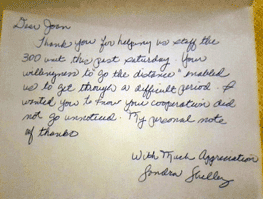 Dear Joan
Thank you for helping us staff the
300 unit this past Saturday. Your
willingness to "go the distance" enabled
us to get through a difficult period. I
wanted you to know your cooperation did
not go unnoticed. My personal note
of thanks
With Much Appreciation
Sondra